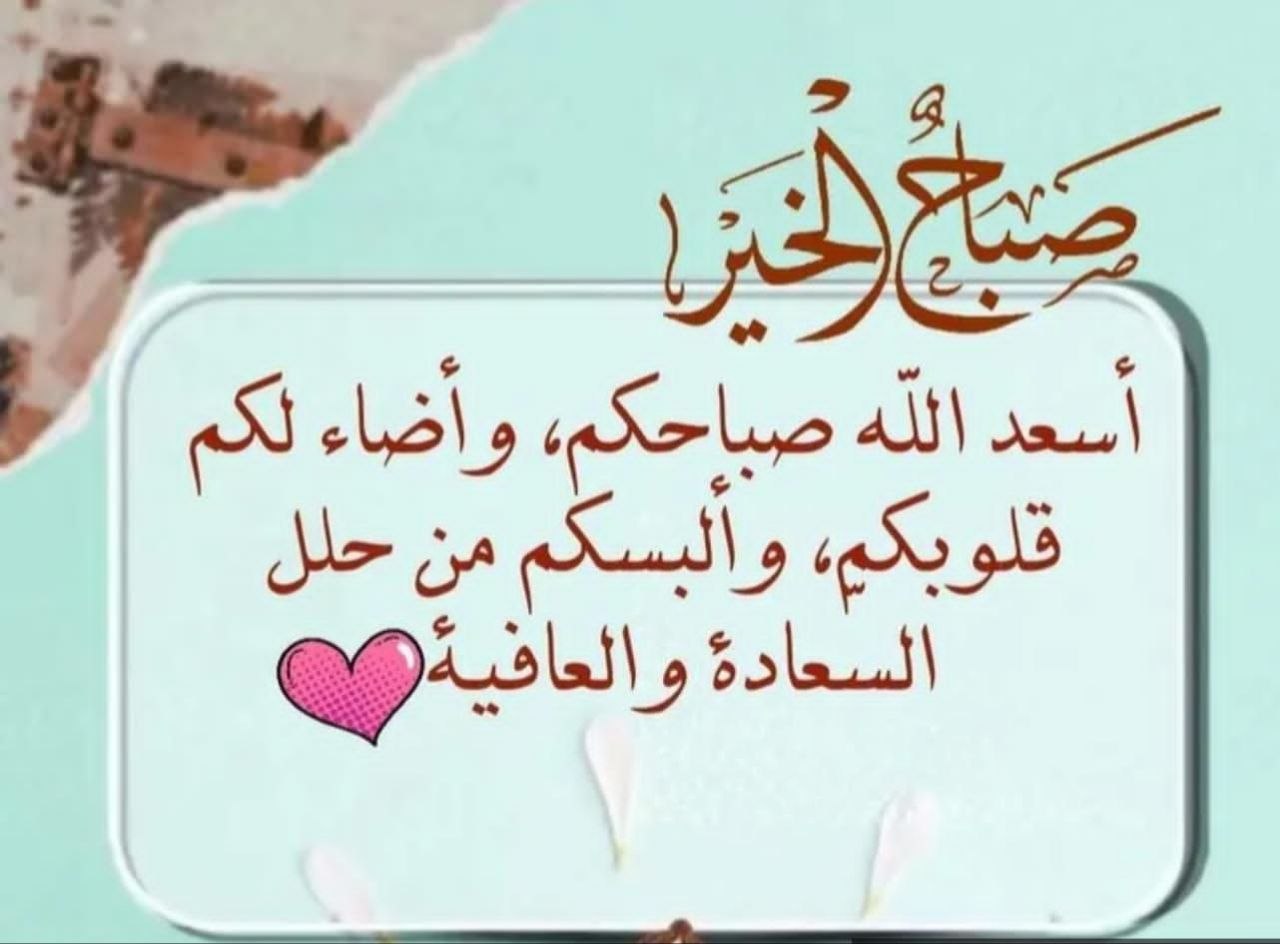 صباح الخير
أسعد اللّه صباحكم، وأضاء لكم
قلوبكمٍّ، وألبسكم من حلل
السعادة والعافية